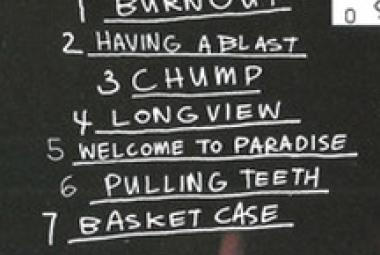 1 BURNOUT
2 HAVING A BLAST
3 CHUMP
4 LONGVIEW
5 WELCOME TO PARADISE
6 PULLING TEETH
7 BASKET CASE